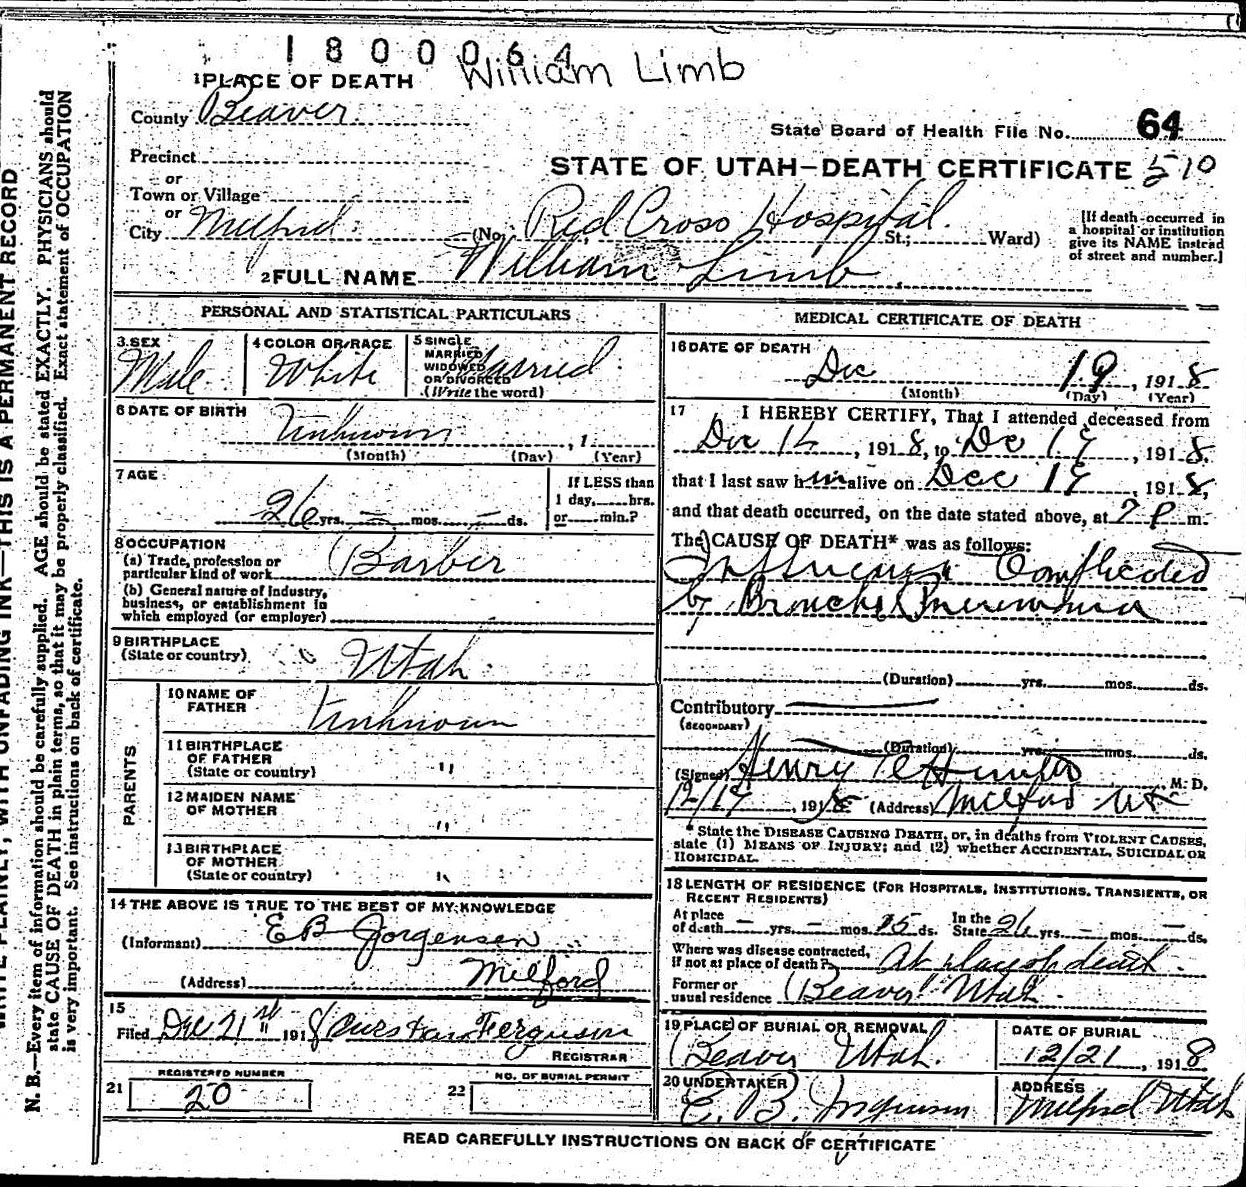 1800064 William Limb
1 PLACE OF DEATH
County Beaver
State Board of Health File No. 64
Precinct
STATE OF UTAH—DEATH CERTIFICATE 510
or
Town or Village
or
City Milford (No. Red Cross Hospital St.; Ward)
[If death occurred in a hospital or institution give its NAME instead of street and number.]
2 FULL NAME William Limb
PERSONAL AND STATISTICAL PARTICULARS
3 SEX Male
4 COLOR OR RACE White
5 SINGLE MARRIED WIDOWED OR DIVORCED Married
(Write the word)
6 DATE OF BIRTH Unknown , 1
(Month) (Day) (Year)
7 AGE
26 yrs. — mos. — ds.
If LESS than
1 day, hrs.
or min.?
8 OCCUPATION
(a) Trade, profession or particular kind of work Barber
(b) General nature of industry, business, or establishment in which employed (or employer)
9 BIRTHPLACE
(State or country) Utah
PARENTS
10 NAME OF FATHER Unknown
11 BIRTHPLACE OF FATHER
(State or country) "
12 MAIDEN NAME OF MOTHER "
13 BIRTHPLACE OF MOTHER
(State or country) "
14 THE ABOVE IS TRUE TO THE BEST OF MY KNOWLEDGE
(Informant) E B Jorgensen
(Address) Milford
15
Filed Dec 21st 1918 Ferguson
REGISTRAR
21 REGISTERED NUMBER 20
22 NO. OF BURIAL PERMIT
MEDICAL CERTIFICATE OF DEATH
16 DATE OF DEATH
Dec 19, 1918
(Month) (Day) (Year)
17 I HEREBY CERTIFY, That I attended deceased from
Dec , 1918, to Dec 19, 1918,
that I last saw him alive on Dec 19, 1918,
and that death occurred, on the date stated above, at 7 P m.
The CAUSE OF DEATH* was as follows:
Influenza Complicated
by Broncho Pneumonia
(Duration) yrs. mos. ds.
Contributory
(SECONDARY)
(Duration) yrs. mos. ds.
(Signed) Henry M. D.
12/19, 1918 (Address) Milford Ut
* State the DISEASE CAUSING DEATH, or, in deaths from VIOLENT CAUSES, state (1) MEANS OF INJURY; and (2) whether ACCIDENTAL, SUICIDAL OR HOMICIDAL.
18 LENGTH OF RESIDENCE (FOR HOSPITALS, INSTITUTIONS, TRANSIENTS, OR RECENT RESIDENTS)
At place of death — yrs. — mos. 15 ds. In the State 26 yrs. — mos. — ds.
Where was disease contracted, if not at place of death? At place of death.
Former or usual residence Beaver Utah.
19 PLACE OF BURIAL OR REMOVAL
Beaver Utah.
DATE OF BURIAL
12/21, 1918
20 UNDERTAKER
E. B. Jorgensen
ADDRESS
Milford Utah
READ CAREFULLY INSTRUCTIONS ON BACK OF CERTIFICATE
WRITE PLAINLY, WITH UNFADING INK—THIS IS A PERMANENT RECORD
N. B.—Every item of information should be carefully supplied. AGE should be stated EXACTLY. PHYSICIANS should
state CAUSE OF DEATH in plain terms, so that it may be properly classified. Exact statement of OCCUPATION
is very important. See instructions on back of certificate.